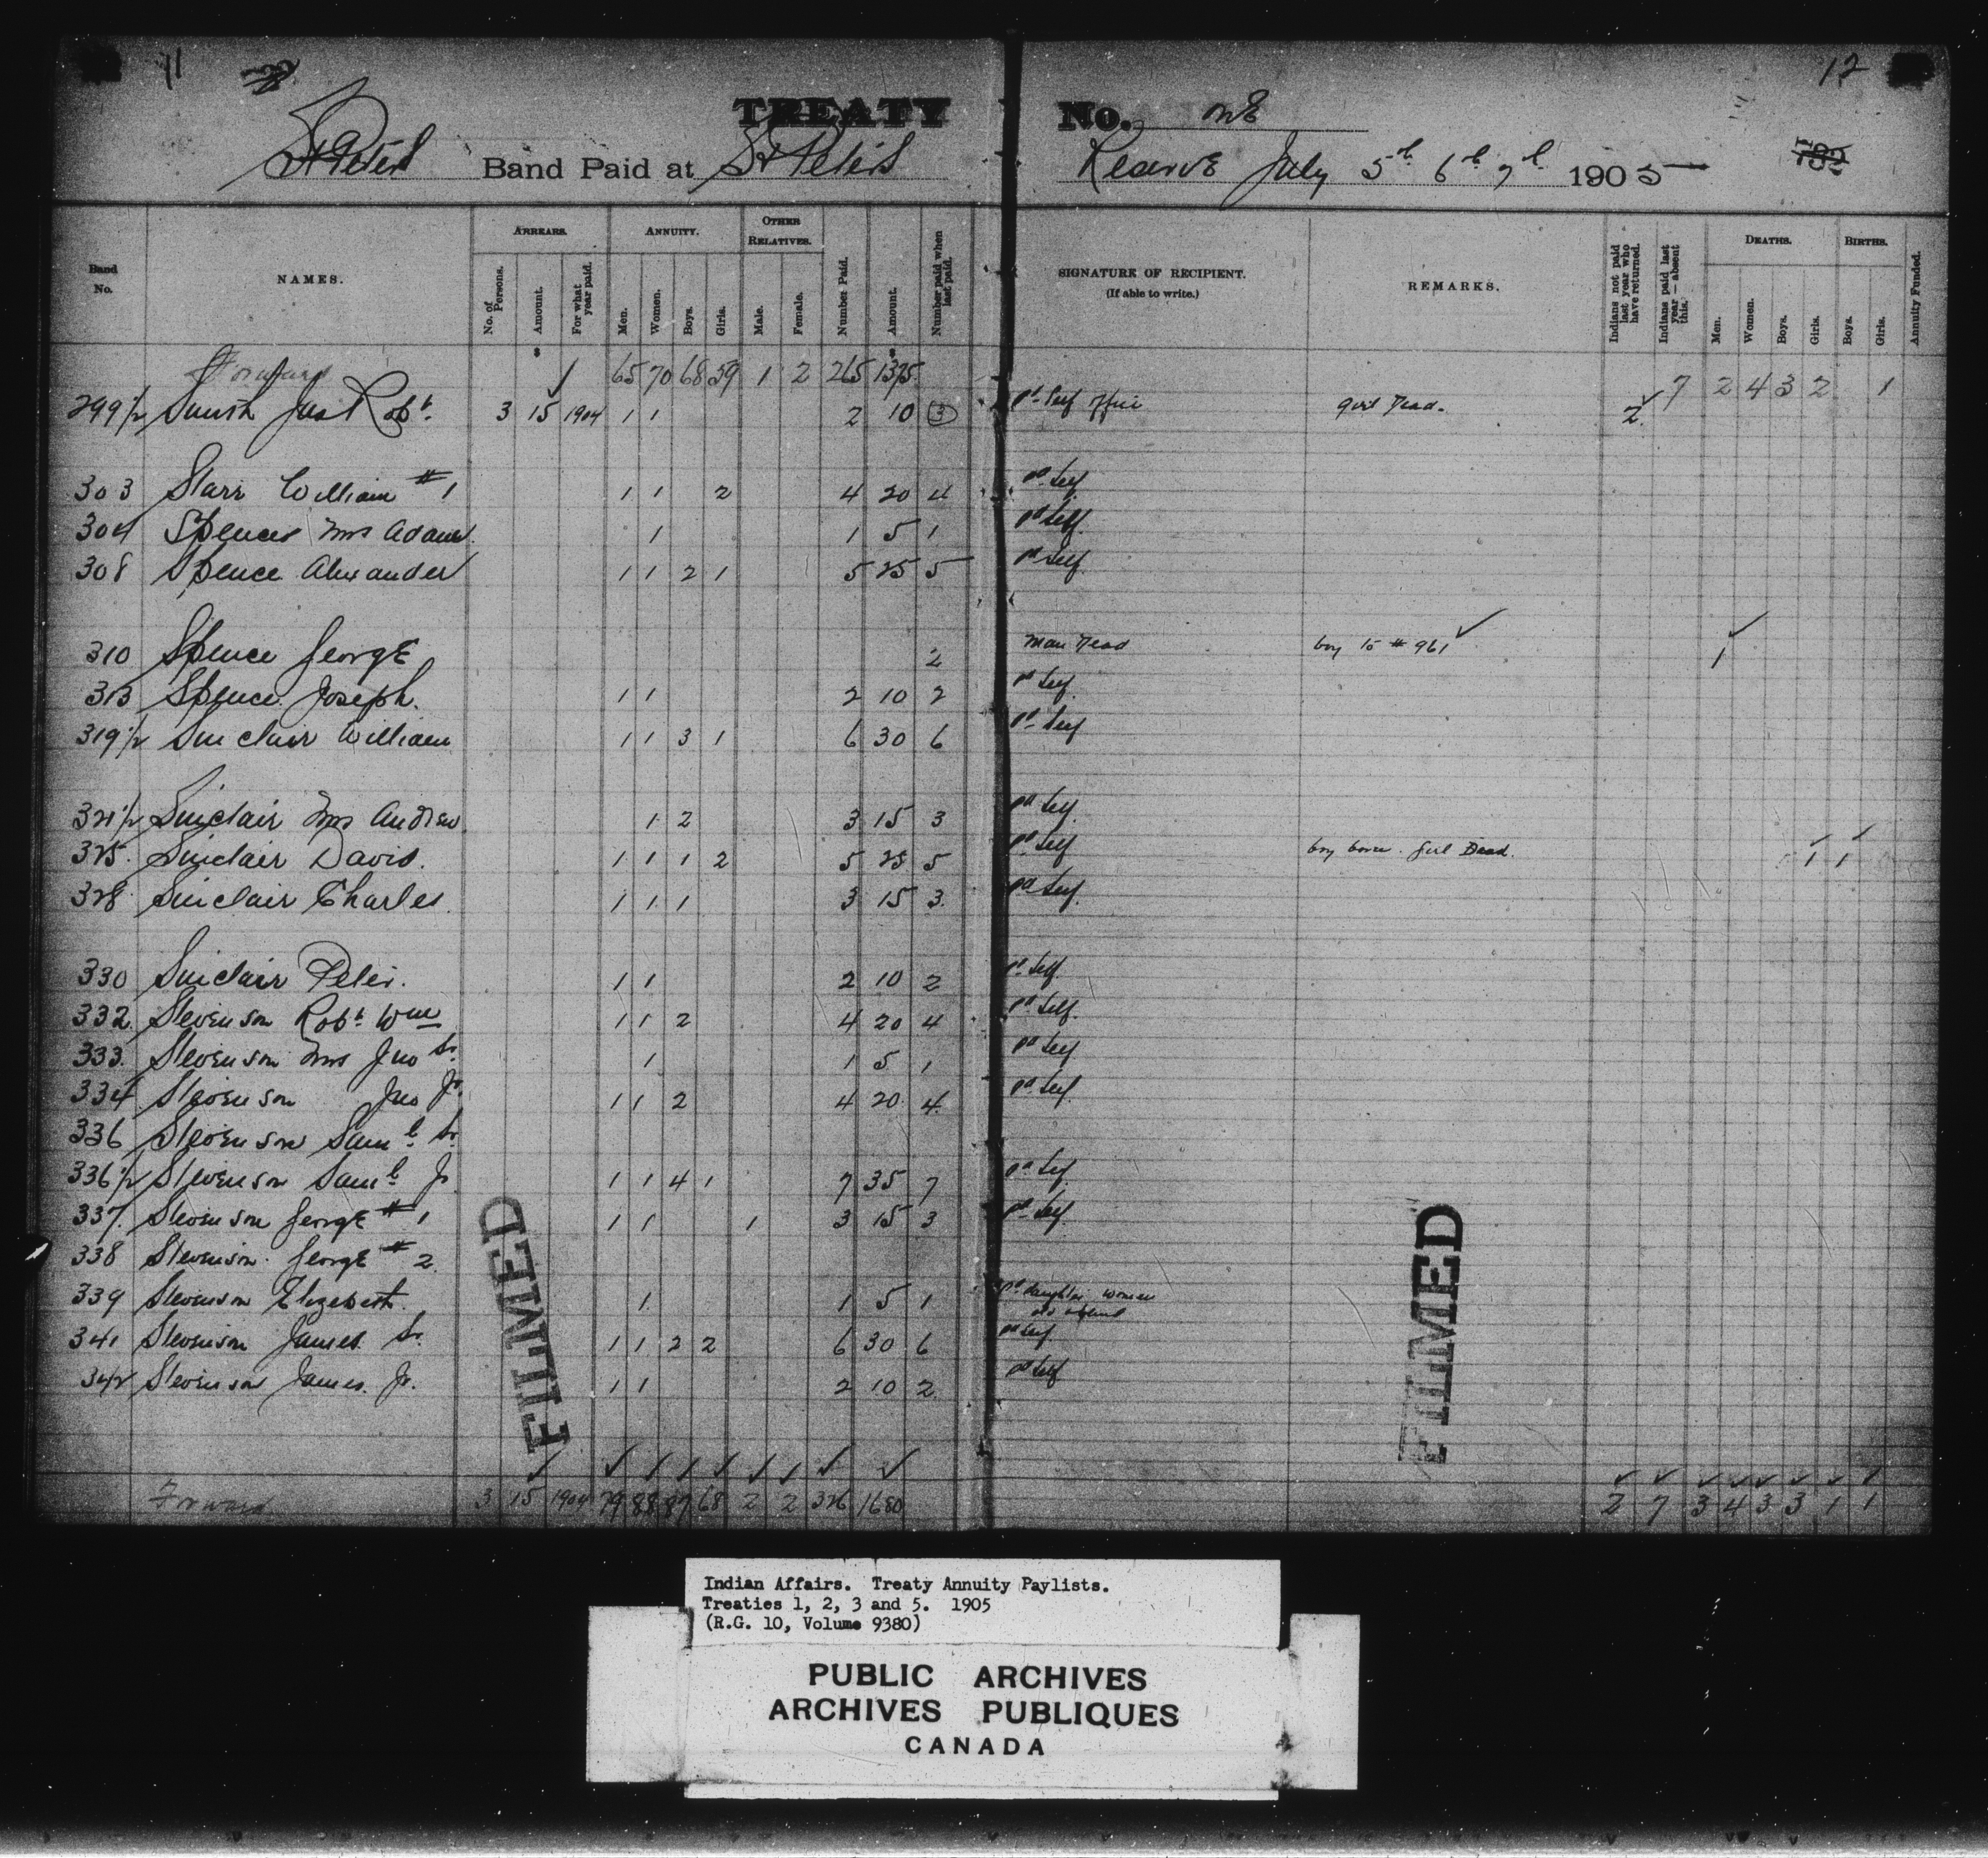 11
12
TREATY No. One
St Peters Band Paid at St Peters Reserve July 5th 6th 7th 1905
Band No. NAMES. ARREARS. No. of Persons. Amount. For what year paid. ANNUITY. Men. Women. Boys. Girls. OTHER RELATIVES. Male. Female. Number Paid. Amount. Number paid when last paid. SIGNATURE OF RECIPIENT. (If able to write.) REMARKS. Indians not paid last year who have returned. Indians paid last year — absent this. DEATHS. Men. Women. Boys. Girls. BIRTHS. Boys. Girls. Annuity Funded.
Forward 65 70 68 59 1 2 265 1325 7 2 4 3 2 1
299½ Smith Jas Robt 3 15 1904 1 1 2 10 3 pd Self girl Dead. 2
303 Starr William #1 1 1 2 4 20 4 pd Self
304 Spence Mrs Adam 1 1 5 1 pd Self
308 Spence Alexander 1 1 2 1 5 25 5 pd Self
310 Spence George 2 Man Dead boy to # 961 1
313 Spence Joseph. 1 1 2 10 2 pd Self
319½ Sinclair William 1 1 3 1 6 30 6 pd Self
321½ Sinclair Mrs Andrew 1 2 3 15 3 pd Self
325 Sinclair David. 1 1 1 2 5 25 5 pd Self boy born. girl Dead. 1 1
328 Sinclair Charles 1 1 1 3 15 3 pd Self
330 Sinclair Peter. 1 1 2 10 2 pd Self
332 Stevenson Robt Wm 1 1 2 4 20 4 pd Self
333 Stevenson Mrs Jno Sr. 1 1 5 1 pd Self
334 Stevenson Jno Jr. 1 1 2 4 20 4 pd Self
336 Stevenson Saml Sr.
336½ Stevenson Saml Jr 1 1 4 1 7 35 7 pd Self
337 Stevenson George #1 1 1 1 3 15 3 pd Self
338 Stevenson George #2
339 Stevenson Elizabeth 1 1 5 1 pd daughter women
341 Stevenson James Sr. 1 1 2 2 6 30 6 pd Self
342 Stevenson James. Jr. 1 1 2 10 2 pd Self
Forward 3 15 1904 79 88 87 68 2 2 326 1680 2 7 3 4 3 3 1 1
FILMED
FILMED
Indian Affairs. Treaty Annuity Paylists.
Treaties 1, 2, 3 and 5. 1905
(R.G. 10, Volume 9380)
PUBLIC ARCHIVES
ARCHIVES PUBLIQUES
CANADA